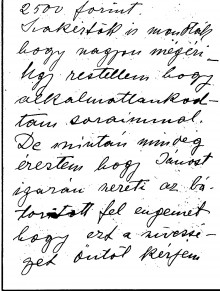 2500 forint.
Szakértők is mondták
hogy nagyon megéri –
Úgy restellem hogy
alkalmatlankod-
tam soraimmal.
De miután mindég
éreztem hogy János
igazán szereti az bá-
torított fel engemet
hogy ezt a szívessé-
get öntöl kérjem